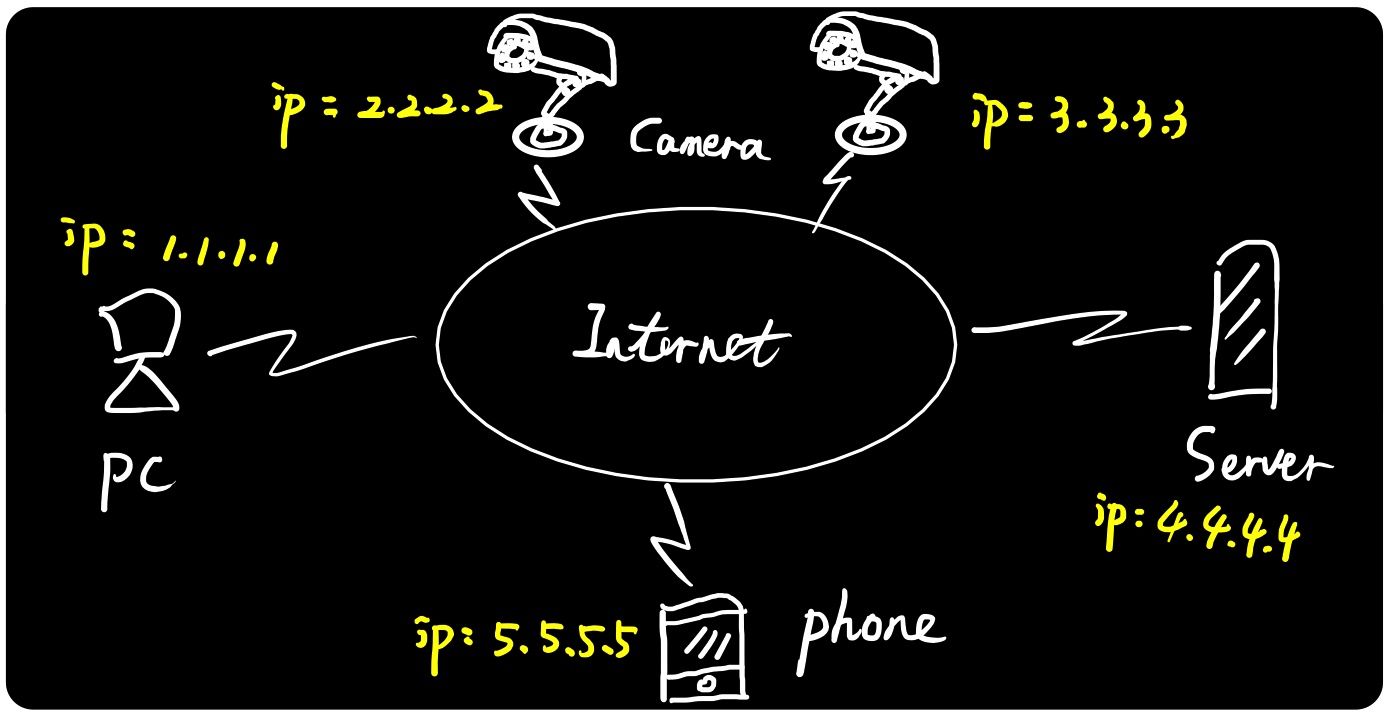 ip = 2.2.2.2
Camera
ip = 3.3.3.3
ip = 1.1.1.1
Internet
PC
Server
ip: 4.4.4.4
ip: 5.5.5.5
phone